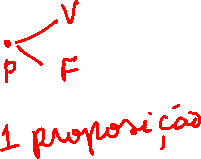 V
P F
1 proposição